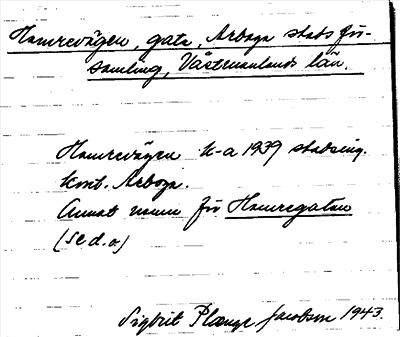 Hamrevägen, gata, Arboga stads för-
samling, Västmanlands län.
Hamrevägen k-a 1939 stadsing.
kont. Arboga.
Annat namn för Hamregatan
(se d.o.)
Sigbrit Plænge Jacobson 1943.